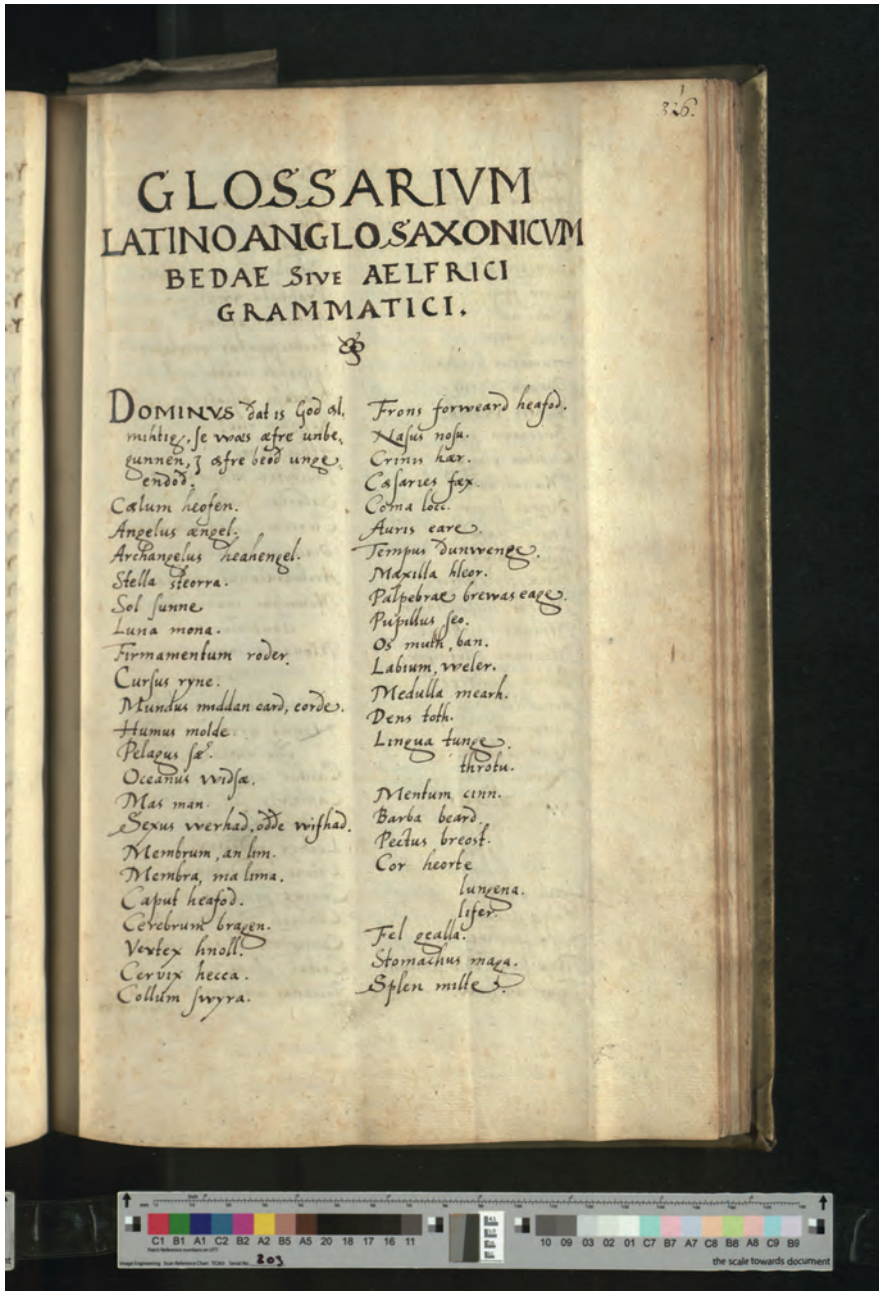 326.
GLOSSARIVM
LATINOANGLOSAXONICVM
BEDAE SIVE AELFRICI
GRAMMATICI.
DOMINVS ðat is God æl,
mihtig, se wæs æfre unbe,
gunnen, ⁊ æfre beoð unge,
endod.
Cælum heofen.
Angelus ængel.
Archangelus heahengel.
Stella steorra.
Sol sunne
Luna mona.
Firmamentum roder.
Cursus ryne.
Mundus middan eard, eorde.
Humus molde.
Pelagus sæ.
Oceanus widsæ.
Mas man.
Sexus werhad, oððe wifhad.
Membrum, an lim.
Membra, ma lima.
Caput heafod.
Cerebrum bragen.
Vertex hnoll.
Cervix hecca.
Collum swyra.
Frons forweard heafod.
Nasus nosu.
Crinis hær.
Cæsaries fæx.
Coma locc.
Auris eare.
Tempus ðunwenge.
Maxilla hleor.
Palpebrae brewas eage.
Pupillus seo.
Os muth, ban.
Labium, weler.
Medulla mearh.
Dens toth.
Lingua tunge.
throtu.
Mentum cinn.
Barba beard.
Pectus breost.
Cor heorte
lungena.
lifer.
Fel gealla.
Stomachus maga.
Splen milte.
C1 B1 A1 C2 B2 A2 B5 A5 20 18 17 16 11
10 09 03 02 01 C7 B7 A7 C8 B8 A8 C9 B9
203
the scale towards document